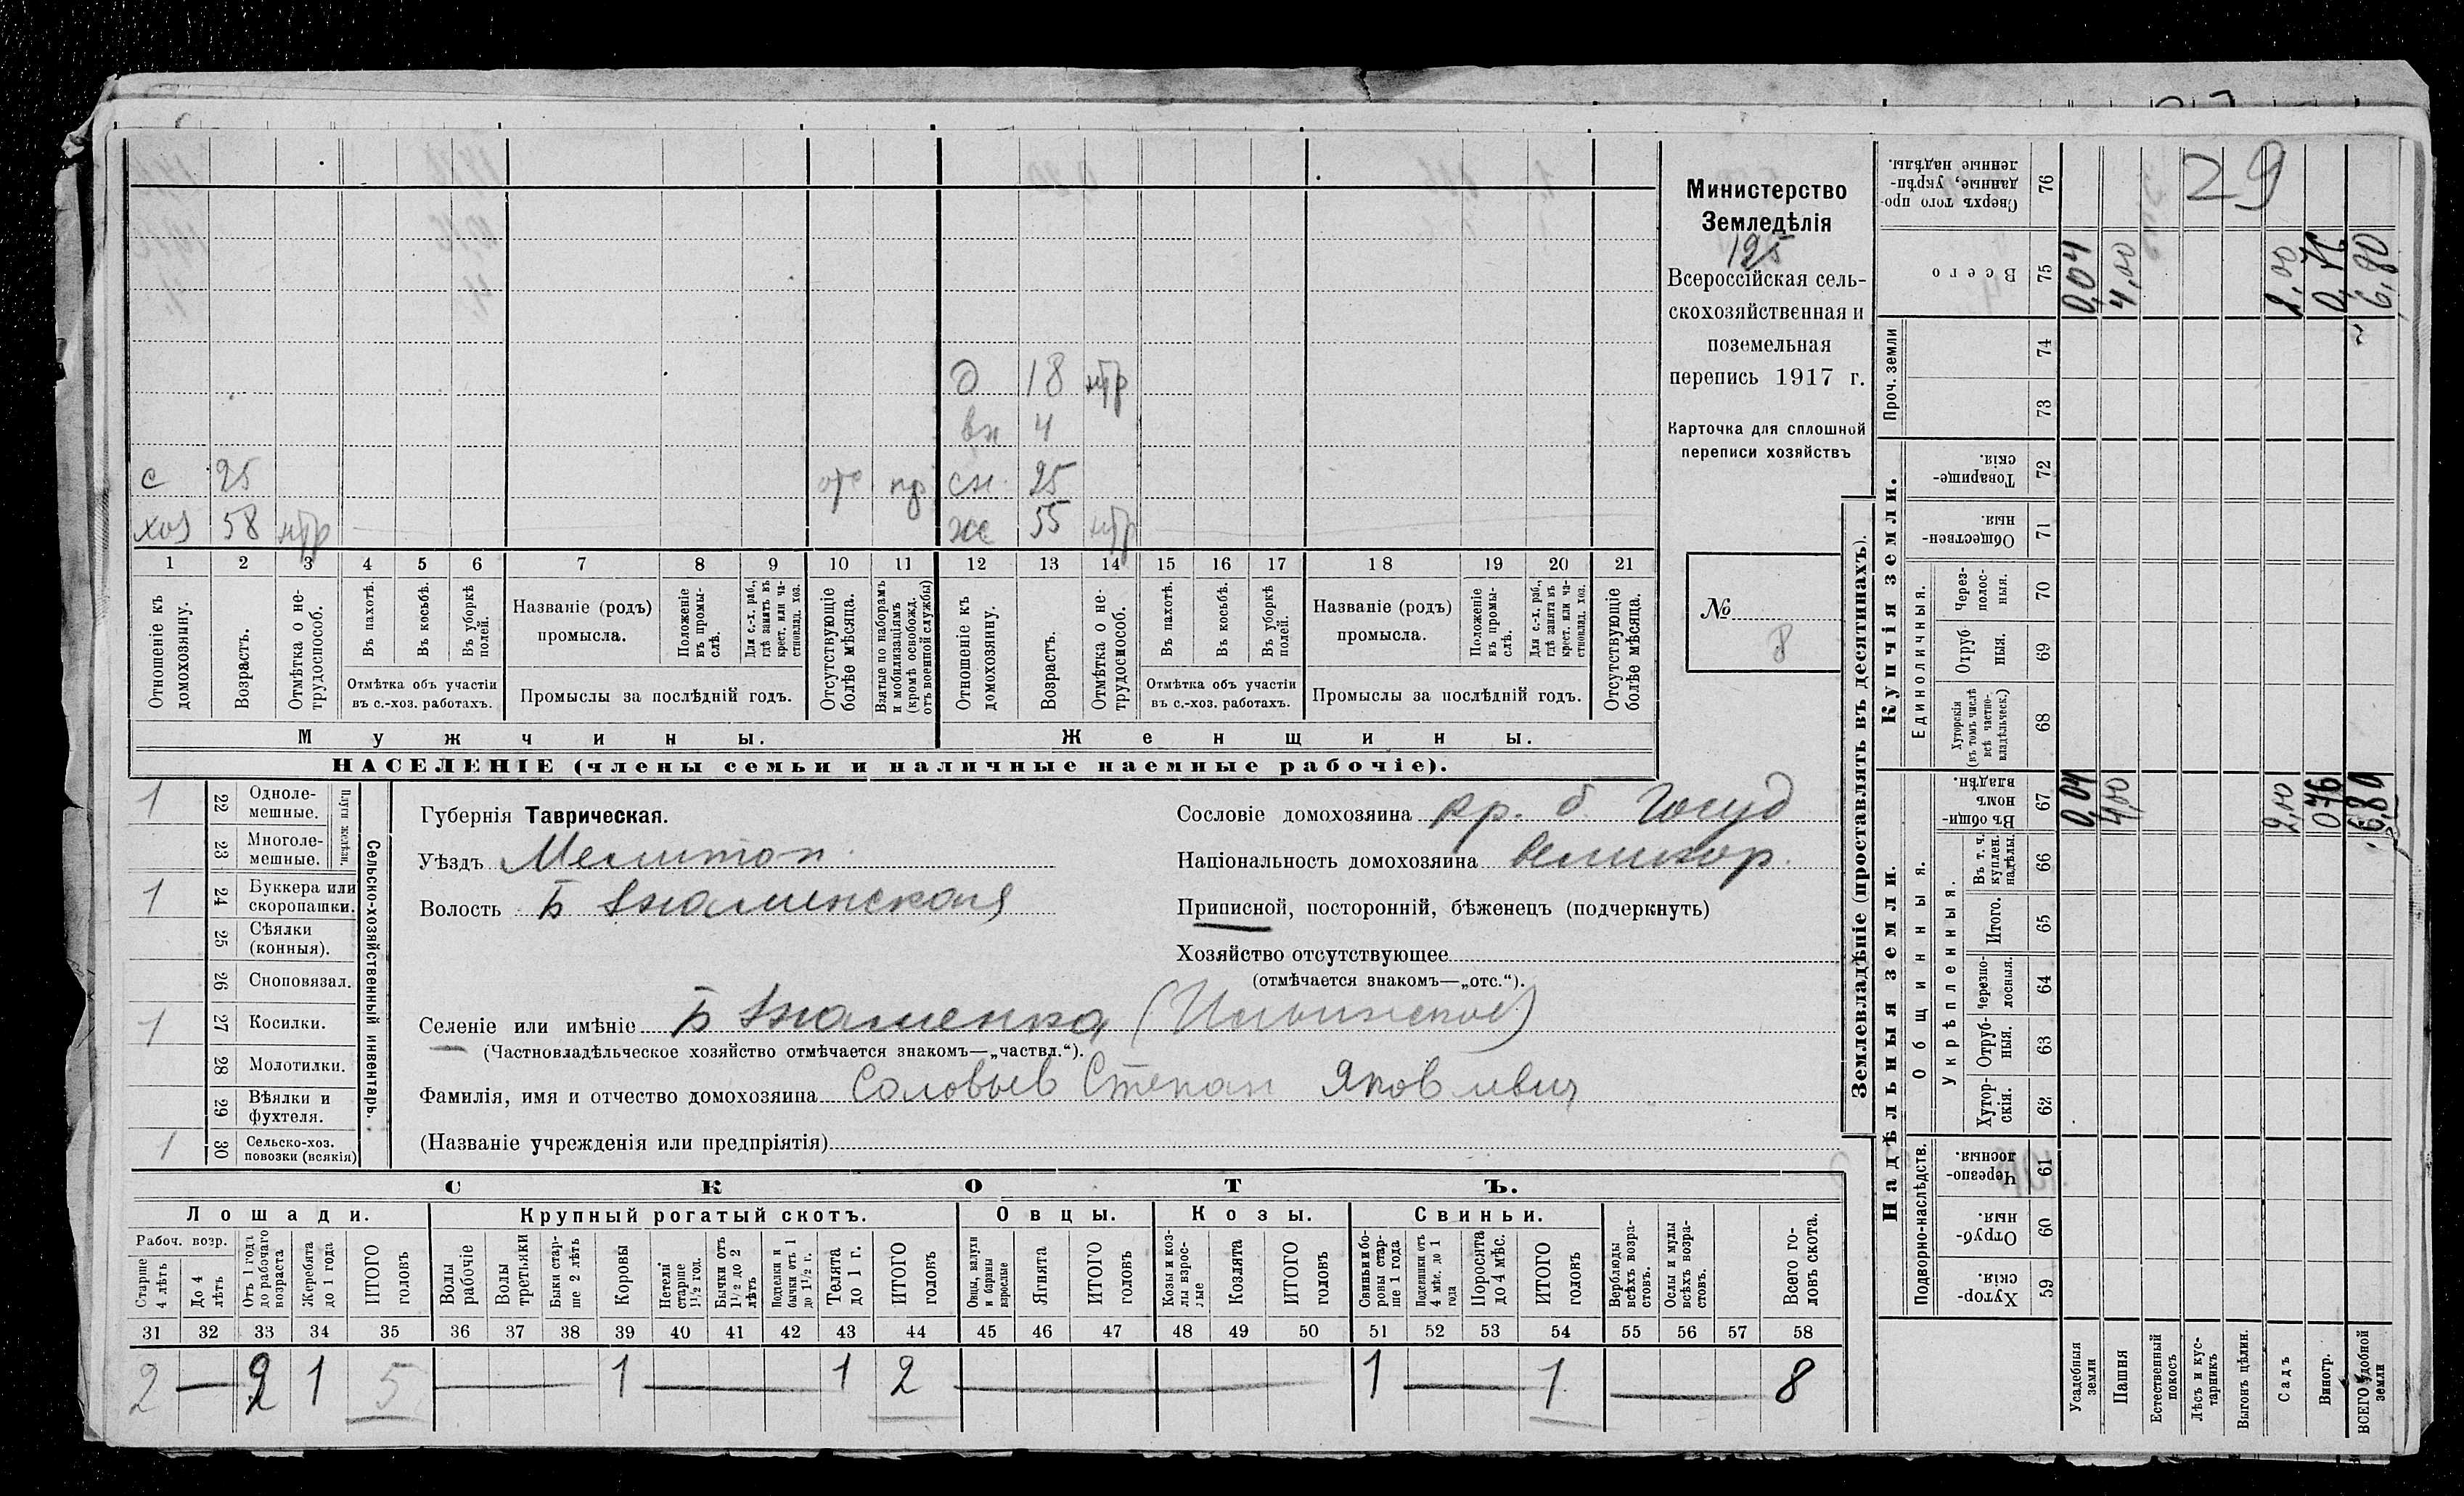 29
Министерство
Земледѣлія
195
Всероссійская сель-
скохозяйственная и
поземельная
перепись 1917 г.
Карточка для сплошной
переписи хозяйствъ
№ 8
О 18 нтр
вн 4
с 25 отс сн 25
хоз 58 нтр же 55 нтр
1 2 3 4 5 6 7 8 9 10 11 12 13 14 15 16 17 18 19 20 21
Отношеніе къ домохозяину.
Возрастъ.
Отмѣтка о не-трудоспособ.
Въ пахотѣ.
Въ косьбѣ.
Въ уборкѣ полей.
Отмѣтка объ участіи
въ с.-хоз. работахъ.
Названіе (родъ)
промысла.
Положеніе въ промы-слѣ.
Для с.-х. раб., гдѣ занятъ въ крест. или ча-стновлад. хоз.
Промыслы за послѣдній годъ.
Отсутствующіе болѣе мѣсяца.
Взятые по наборамъ и мобилизаціямъ (кромѣ освобожд. отъ военной службы)
Отношеніе къ домохозяину.
Возрастъ.
Отмѣтка о не-трудоспособ.
Въ пахотѣ.
Въ косьбѣ.
Въ уборкѣ полей.
Отмѣтка объ участіи
въ с.-хоз. работахъ.
Названіе (родъ)
промысла.
Положеніе въ промы-слѣ.
Для с.-х. раб., гдѣ занята въ крест. или ча-стновлад. хоз.
Промыслы за послѣдній годъ.
Отсутствующіе болѣе мѣсяца.
Мужчины. Женщины.
НАСЕЛЕНІЕ (члены семьи и наличные наемные рабочіе).
Сельско-хозяйственный инвентарь.
Плуги желѣзн.
1 22 Одноле-мешные.
23 Многоле-мешные.
1 24 Буккера или скоропашки.
25 Сѣялки (конныя).
26 Сноповязал.
1 27 Косилки.
28 Молотилки.
29 Вѣялки и фухтеля.
1 30 Сельско-хоз. повозки (всякія)
Губернія Таврическая.
Уѣздъ Мелитоп.
Волость Б Знаменская
Сословіе домохозяина кр. б. госуд
Національность домохозяина великор.
Приписной, посторонній, бѣженецъ (подчеркнуть)
Хозяйство отсутствующее
(отмѣчается знакомъ—„отс.“).
Селеніе или имѣніе Б Знаменка (Ильинское)
(Частновладѣльческое хозяйство отмѣчается знакомъ—„частвл.“).
Фамилія, имя и отчество домохозяина Соловьев Степан Яковлевич
(Названіе учрежденія или предпріятія)
СКОТЪ.
Лошади. Крупный рогатый скотъ. Овцы. Козы. Свиньи.
Рабоч. возр.
Старше 4 лѣтъ
До 4 лѣтъ
Отъ 1 года до рабочаго возраста
Жеребята до 1 года
ИТОГО головъ
Волы рабочіе
Волы третьяки
Быки стар-ше 2 лѣтъ
Коровы
Нетели старше 1½ год.
Бычки отъ 1½ до 2 лѣтъ
Подтелки и бычки отъ 1 до 1½ г.
Телята до 1 г.
ИТОГО головъ
Овцы, валухи и бараны взрослые
Ягнята
ИТОГО головъ
Козы и коз-лы взрос-лые
Козлята
ИТОГО головъ
Свиньи и бо-ровы стар-ше 1 года
Подсвинки отъ 4 мѣс. до 1 года
Поросята до 4 мѣс.
ИТОГО головъ
Верблюды всѣхъ возра-стовъ.
Ослы и мулы всѣхъ возра-стовъ.
Всего го-ловъ скота.
31 32 33 34 35 36 37 38 39 40 41 42 43 44 45 46 47 48 49 50 51 52 53 54 55 56 57 58
2 — 2 1 5 — 1 — 1 2 — 1 — 1 — 8
Землевладѣніе (проставлять въ десятинахъ).
Надѣльныя земли.
Купчія земли.
Проч. земли
Подворно-наслѣдств.
Общинныя.
Укрѣпленныя.
Единоличныя.
Сверхъ того про-данные, укрѣп-ленные надѣлы. 76
Всего 75 0,04 4,00 2,00 0,76 6,80
74
73
Товарище-скія. 72
Обществен-ныя 71
Через-полос-ныя. 70
Отруб-ныя. 69
Хуторскія (въ томъ числѣ всѣ частно-владѣльческ.) 68
Въ общи-номъ владѣн. 67 0,04 4,00 2,00 0,76 6,80
Въ т. ч. куплен. надѣлы. 66
Итого. 65
Черезпо-лосныя. 64
Отруб-ныя. 63
Хутор-скія. 62
Черезпо-лосныя. 61
Отруб-ныя. 60
Хутор-скія. 59
Усадебныя земли
Пашня
Естественный покосъ
Лѣсъ и кус-тарникъ
Выгонъ цѣлин.
Садъ
Виногр.
ВСЕГО удобной земли